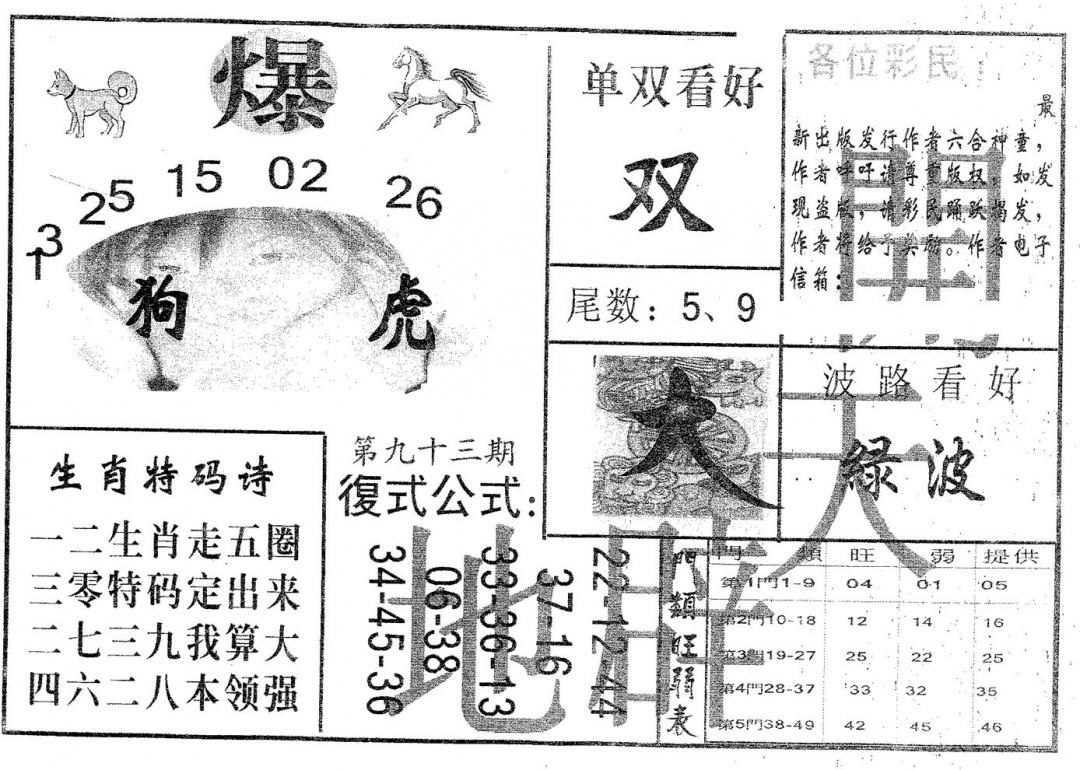 爆
13
25
15
02
26
狗
虎
单双看好
双
尾数：5、9
大
各位彩民：
最
新出版发行作者六合神童，
作者呼吁请尊重版权，如发
现盗版，请彩民踊跃揭发，
作者将给予奖励。作者电子
信箱：
波路看好
绿波
開
天
地
生肖特码诗
一二生肖走五圈
三零特码定出来
二七三九我算大
四六二八本领强
第九十三期
復式公式：
34-45-36
06-38
33-36-13
37-16
22-12-44
門類旺弱表
門 類 旺 弱 提供
第1門1-9 04 01 05
第2門10-18 12 14 16
第3門19-27 25 22 25
第4門28-37 33 32 35
第5門38-49 42 45 46